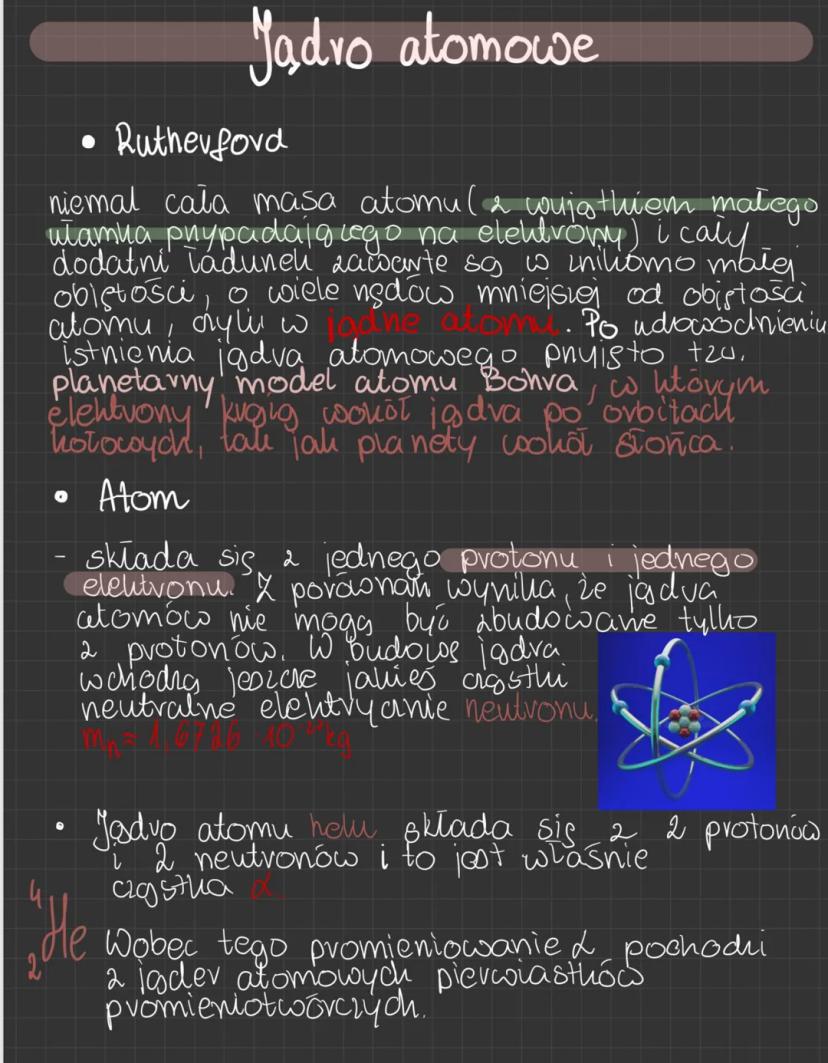 Jądro atomowe
• Rutherford
niemal cała masa atomu (z wyjątkiem małego
ułamka przypadającego na elektrony) i cały
dodatni ładunek zawarte są w znikomo małej
objętości, o wiele rzędów mniejszej od objętości
atomu, czyli w jądrze atomu. Po udowodnieniu
istnienia jądra atomowego przyjęto tzw.
planetarny model atomu Bohra, w którym
elektrony krążą wokół jądra po orbitach
kołowych, tak jak planety wokół słońca.
• Atom
- składa się z jednego protonu i jednego
elektronu. Z porównań wynika, że jądra
atomów nie mogą być zbudowane tylko
z protonów. W budowę jądra
wchodzą jeszcze jakieś cząstki
neutralne elektrycznie neutronu.
mₙ ≈ 1,6726 · 10⁻²⁷kg
• Jądro atomu helu składa się z 2 protonów
i 2 neutronów i to jest właśnie
cząstka α
⁴₂He
Wobec tego promieniowanie α pochodzi
z jąder atomowych pierwiastków
promieniotwórczych.